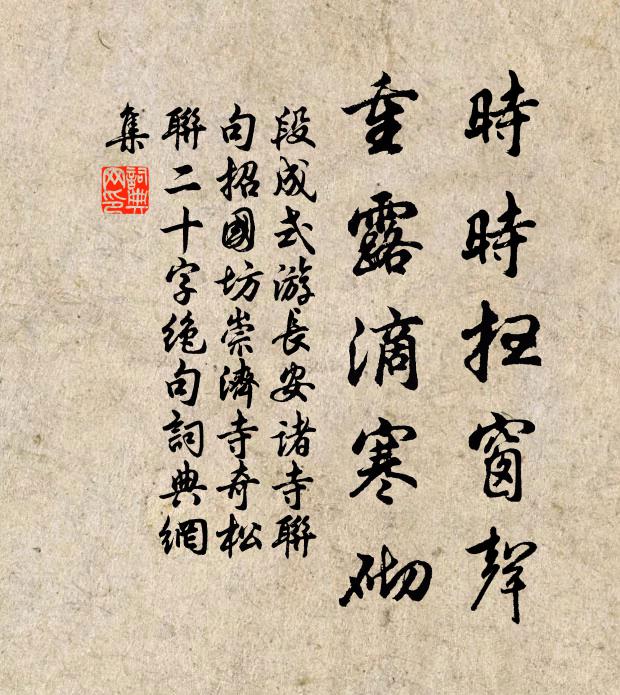 時時扫窗聲
重露滴寒砌
段成式游長安諸寺聯
句招國坊崇濟寺奇松
聯二十字絶句詞典網
集
詞典
网印